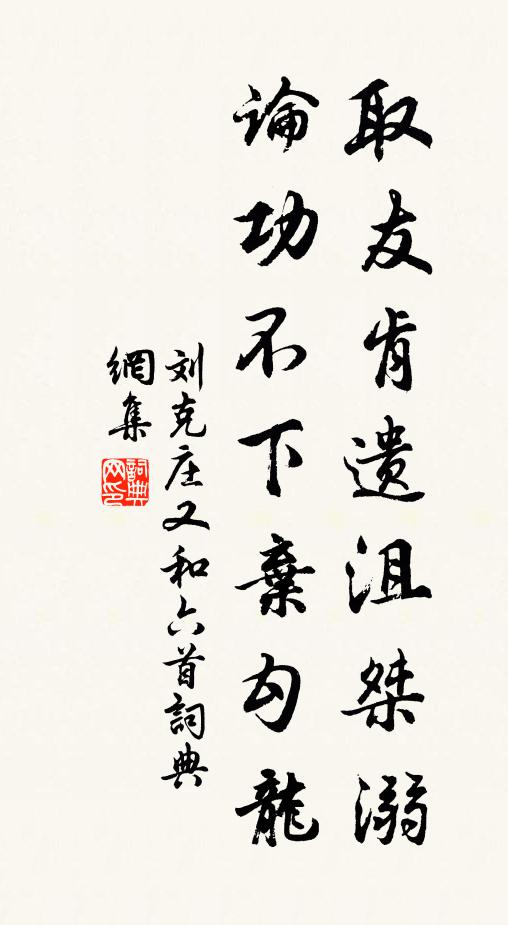 取友肯遗沮桀溺
論功不下棄勾龍
刘克庄又和六首詞典
網集
詞典网印